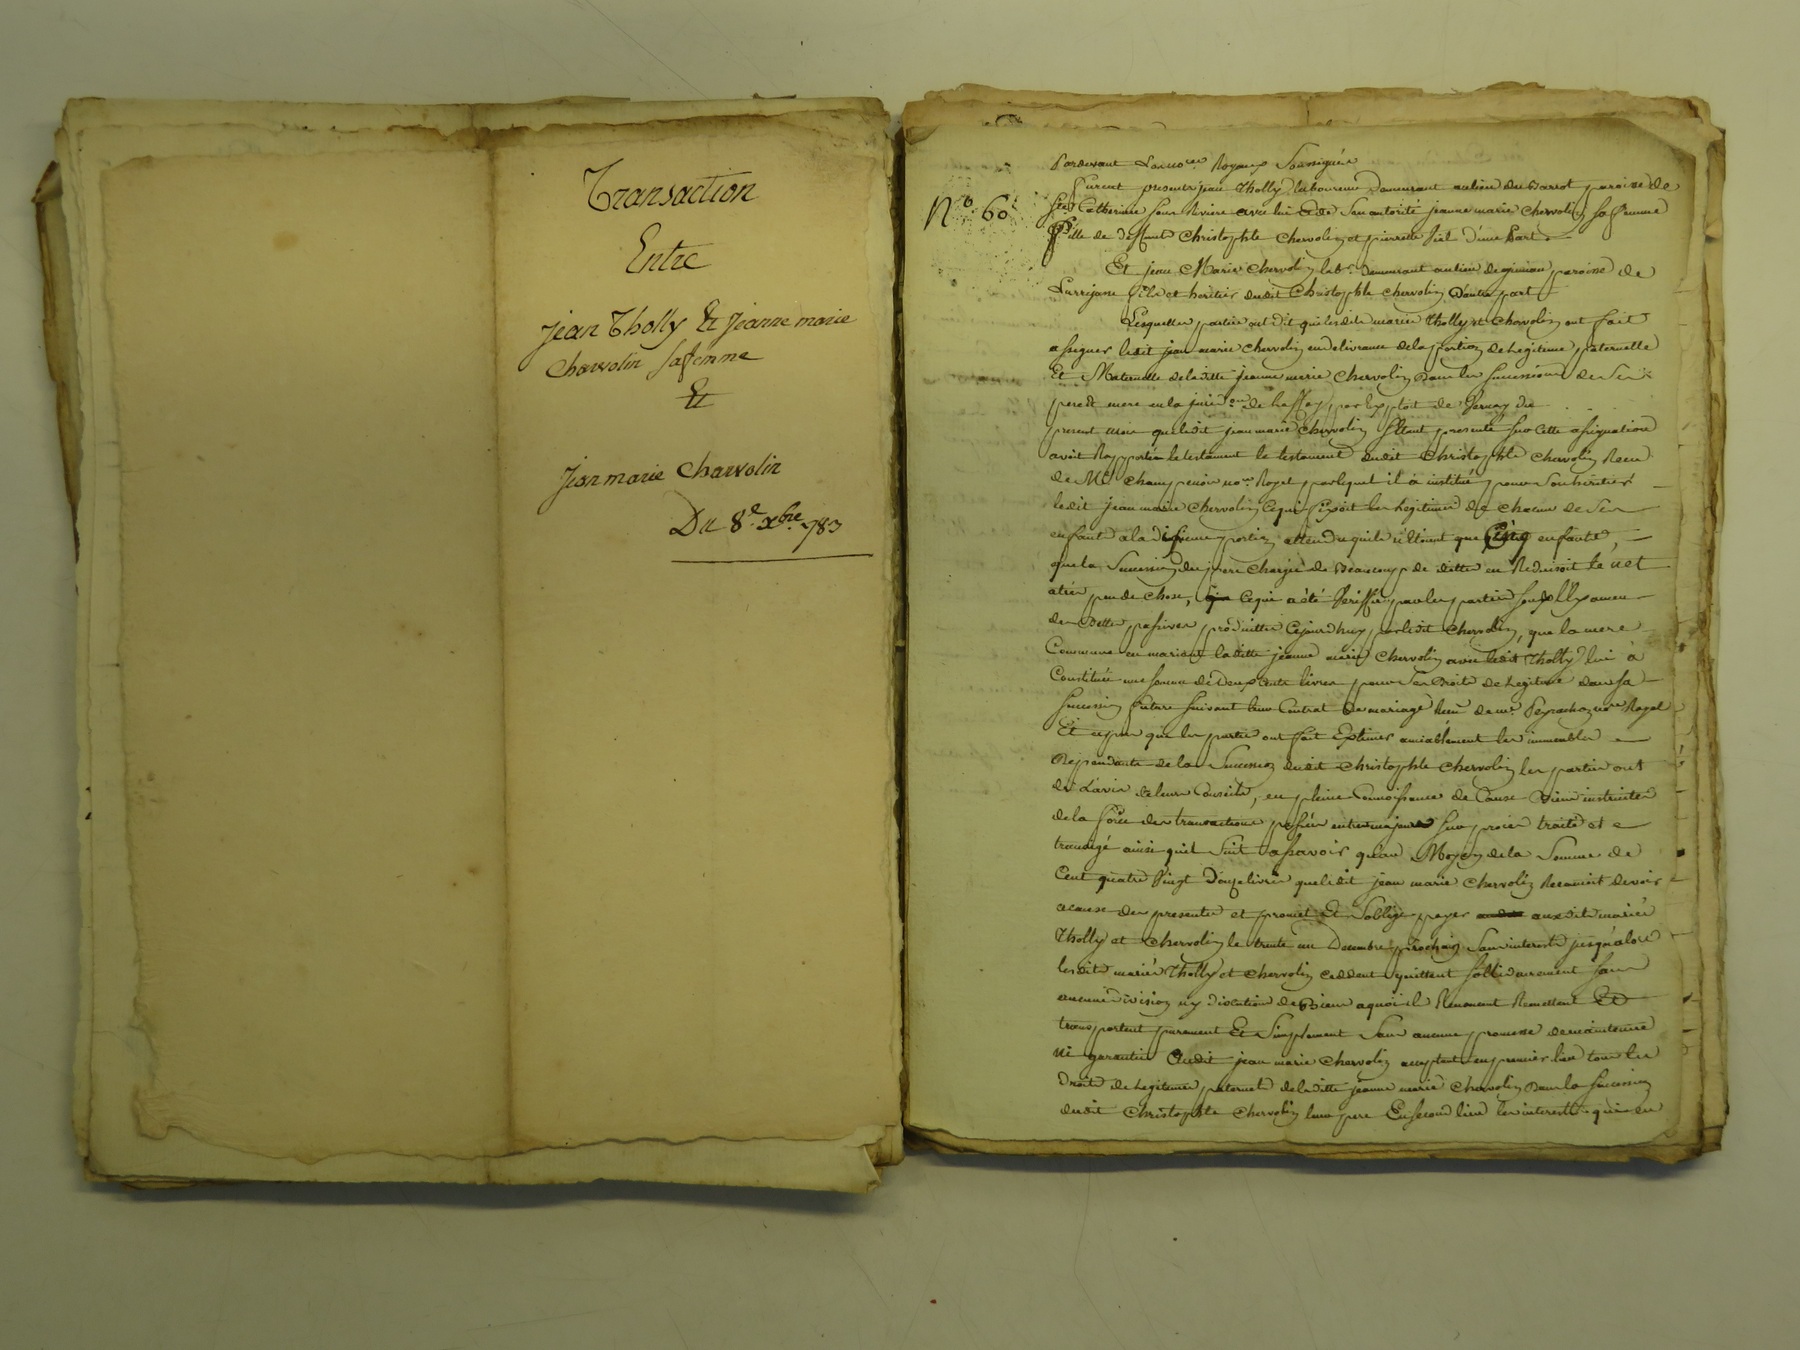 Transaction
Entre
Jean Tholly Et Jeanne marie
Charvolin sa femme
Et
Jean marie Charvolin
Du 8e. Xbre. 783
No. 60
Pardevant Les nores Royaux Soussignés
furent presents jean Tholly laboureur Demeurant au lieu du Barrot paroisse de
Ste Catherine sous Riviere avec lui et de Son autorité jeanne marie Chervolin sa femme
fille de deffunt Christophle Chervolin et pierrette fiel d'une Part
Et jean Marie Chervolin labr. demeurant au lieu de paroisse de
Larrijasse fils et heritier dudit Christophle Chervolin D'autre part
Lesquelles parties ont dit que lesdits mariés Tholly et Chervolin ont fait
assigner ledit jean marie Chervolin en delivrance de la portion de Legitime paternelle
Et Maternelle de laditte jeanne marie Chervolin Dans les Successions de Ses
pere et mere en la jurid.on de par Exploit de du
present mois que ledit jean marie Chervolin s'Etant presenté sur Cette assignation
avoit Rapporté le testament le testament dudit Christophle Chervolin Recu
de Me Champenois nore Royal par lequel il à institué pour Son heritier
ledit jean marie Chervolin Ce qui fixoit les Legitimes de chacun de Ses
enfants a la dixieme portion attendu quils n'Etoient que Cinq enfants,
que la Succession du pere Chargée de Beaucoup de dettes en Reduisoit le net
a tres peu de Chose, Ce qui a été Veriffié par les parties sur l'Examen
des Dettes passives produittes Cejourdhuy par ledit Chervolin, que la mere
Commune en mariant laditte jeanne marie Chervolin avec ledit Tholly lui à
Constitué une somme de Deux Cents livres pour Ses Droits de Legitime dans sa
Succession future suivant leur Contrat de mariage Recu de me. nore Royal
Et apres que les parties ont fait Estimer amiablement les immeubles
Dependants de la Succession dudit Christophle Chervolin les parties ont
de L'avis de leurs Conseils, en pleine Connoissance de Cause Bien instruites
de la force des transactions passées entre majeurs sur procès traité et
transigé ainsi quil Suit assavoir qu'au Moyen de la Somme de
Cent quatre Vingt Douze livres que ledit jean marie Chervolin Reconnoit devoir
a cause des presentes et promet Et s'oblige payer auxdits mariés
Tholly et Chervolin le trente un Decembre prochain Sans interests jusqu'alors
lesdits mariés Tholly et Chervolin cedent quittent sollidairement sans
aucune division ny discution de Biens a quoi ils Renoncent Remettent Et
transportent purement Et Simplement Sans aucune promesse de maintenue
ni garantie Audit jean marie Chervolin acceptant en premier lieu tous les
Droits de Legitime paternels de laditte jeanne marie Chervolin Dans la Succession
dudit Christophle Chervolin leur pere En second lieu les interests qui en